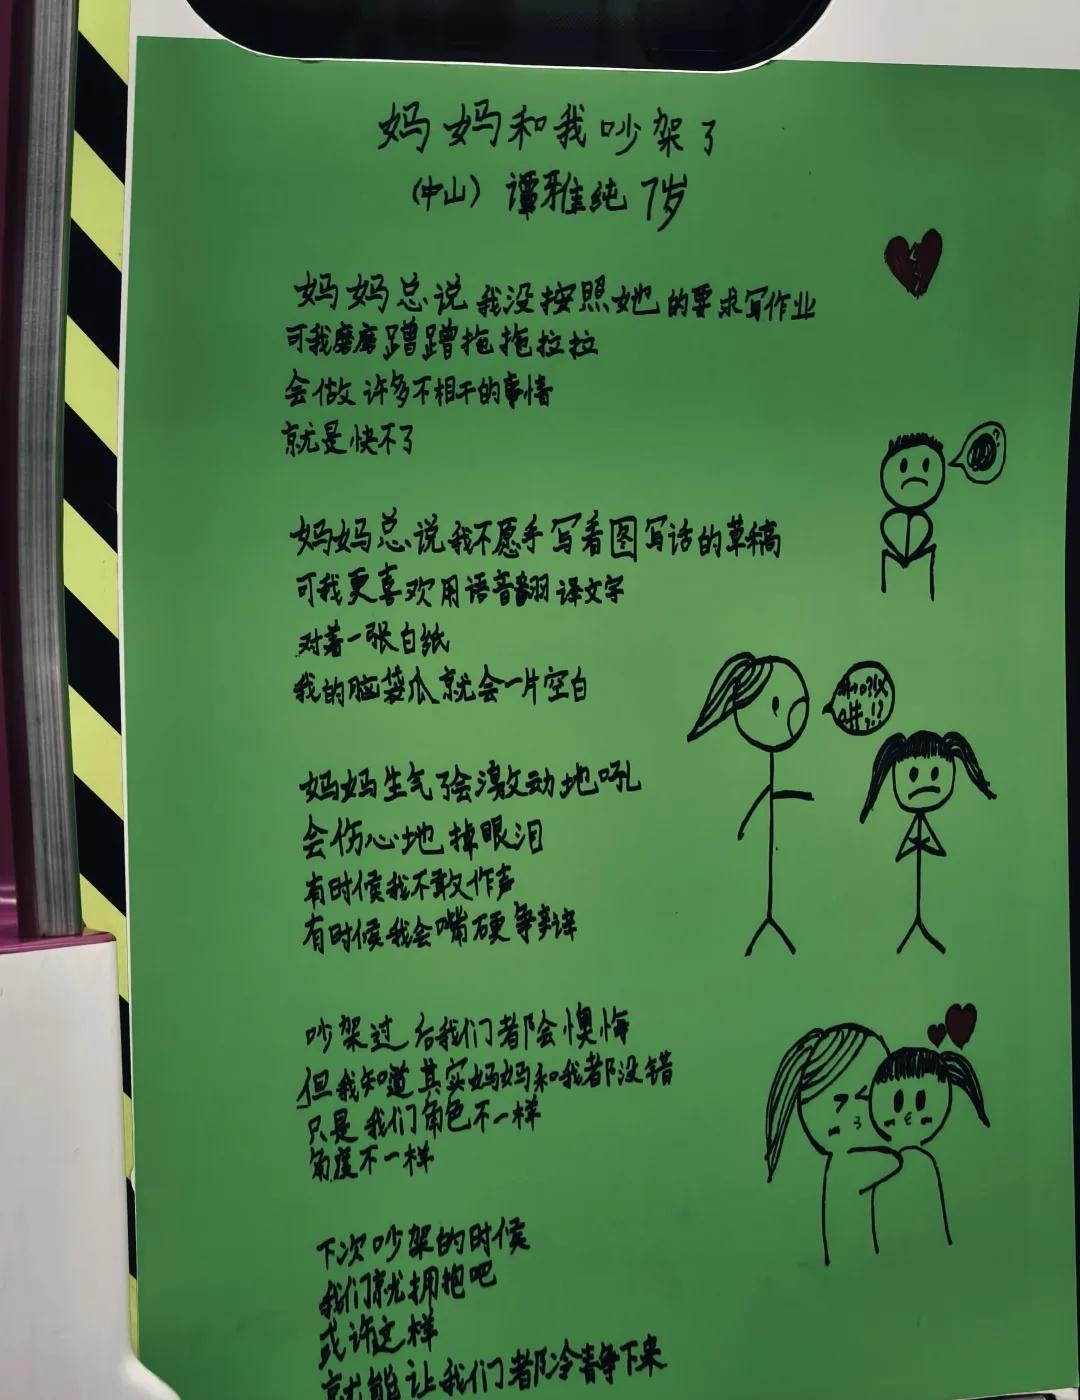 妈妈和我吵架了
(中山) 谭雅纯 7岁
妈妈总说我没按照她的要求写作业
可我磨磨蹭蹭拖拖拉拉
会做许多不相干的事情
就是快不了
妈妈总说我不愿手写看图写话的草稿
可我更喜欢用语音翻译文字
对着一张白纸
我的脑袋瓜就会一片空白
妈妈生气了会激动地吼
会伤心地掉眼泪
有时候我不敢作声
有时候我会嘴硬争辩
吵架过后我们都会懊悔
但我知道其实妈妈和我都没错
只是我们角色不一样
角度不一样
下次吵架的时候
我们就拥抱吧
或许这样
就能让我们都冷静下来